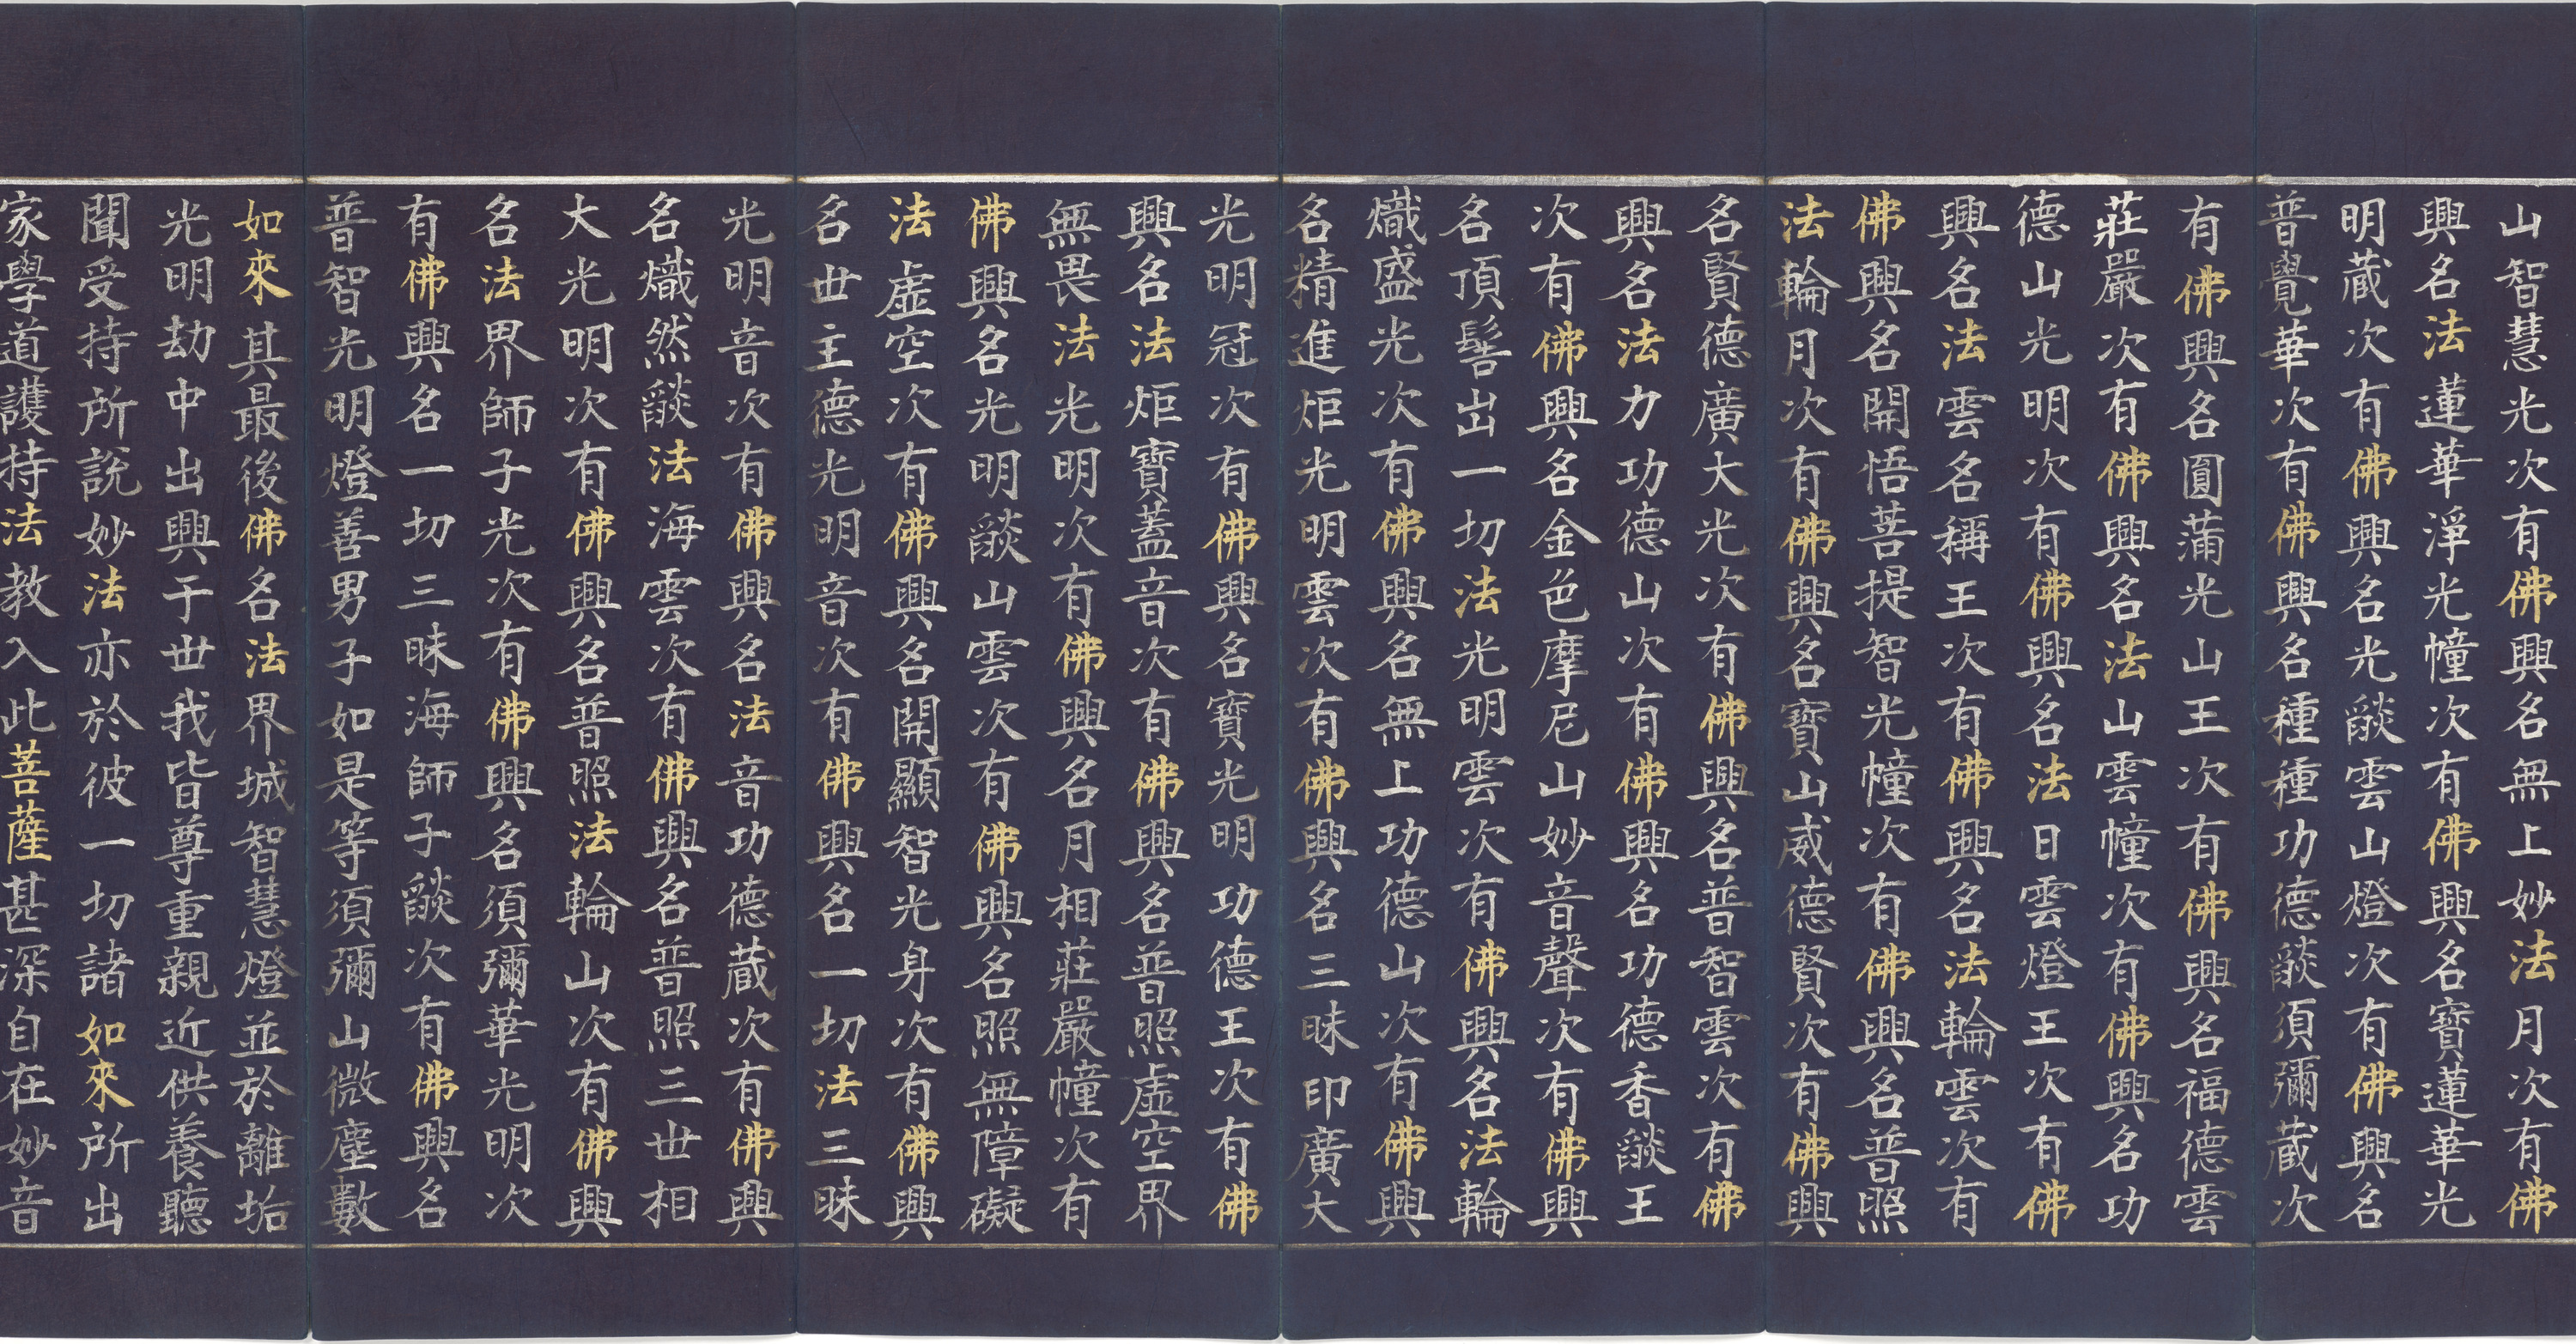 山智慧光次有佛興名無上妙法月次有佛
興名法蓮華淨光幢次有佛興名寶蓮華光
明蔵次有佛興名光燄雲山燈次有佛興名
普覺華次有佛興名種種功德燄須彌蔵次
有佛興名圓蒲光山王次有佛興名福德雲
莊嚴次有佛興名法山雲幢次有佛興名功
德山光明次有佛興名法日雲燈王次有佛
興名法雲名稱王次有佛興名法輪雲次有
佛興名開悟菩提智光幢次有佛興名普照
法輪月次有佛興名寶山威德賢次有佛興
名賢德廣大光次有佛興名普智雲次有佛
興名法力功德山次有佛興名功德香燄王
次有佛興名金色摩尼山妙音聲次有佛興
名頂髻出一切法光明雲次有佛興名法輪
熾盛光次有佛興名無上功德山次有佛興
名精進炬光明雲次有佛興名三昧印廣大
光明冠次有佛興名寶光明功德王次有佛
興名法炬寶蓋音次有佛興名普照虛空界
無畏法光明次有佛興名月相莊嚴幢次有
佛興名光明燄山雲次有佛興名照無障礙
法虛空次有佛興名開顯智光身次有佛興
名世主德光明音次有佛興名一切法三昧
光明音次有佛興名法音功德蔵次有佛興
名熾然燄法海雲次有佛興名普照三世相
大光明次有佛興名普照法輪山次有佛興
名法界師子光次有佛興名須彌華光明次
有佛興名一切三昧海師子燄次有佛興名
普智光明燈善男子如是等須彌山微塵數
如來其最後佛名法界城智慧燈並於離垢
光明劫中出興于世我皆尊重親近供養聽
聞受持所說妙法亦於彼一切諸如來所出
家學道護持法教入此菩薩甚深自在妙音